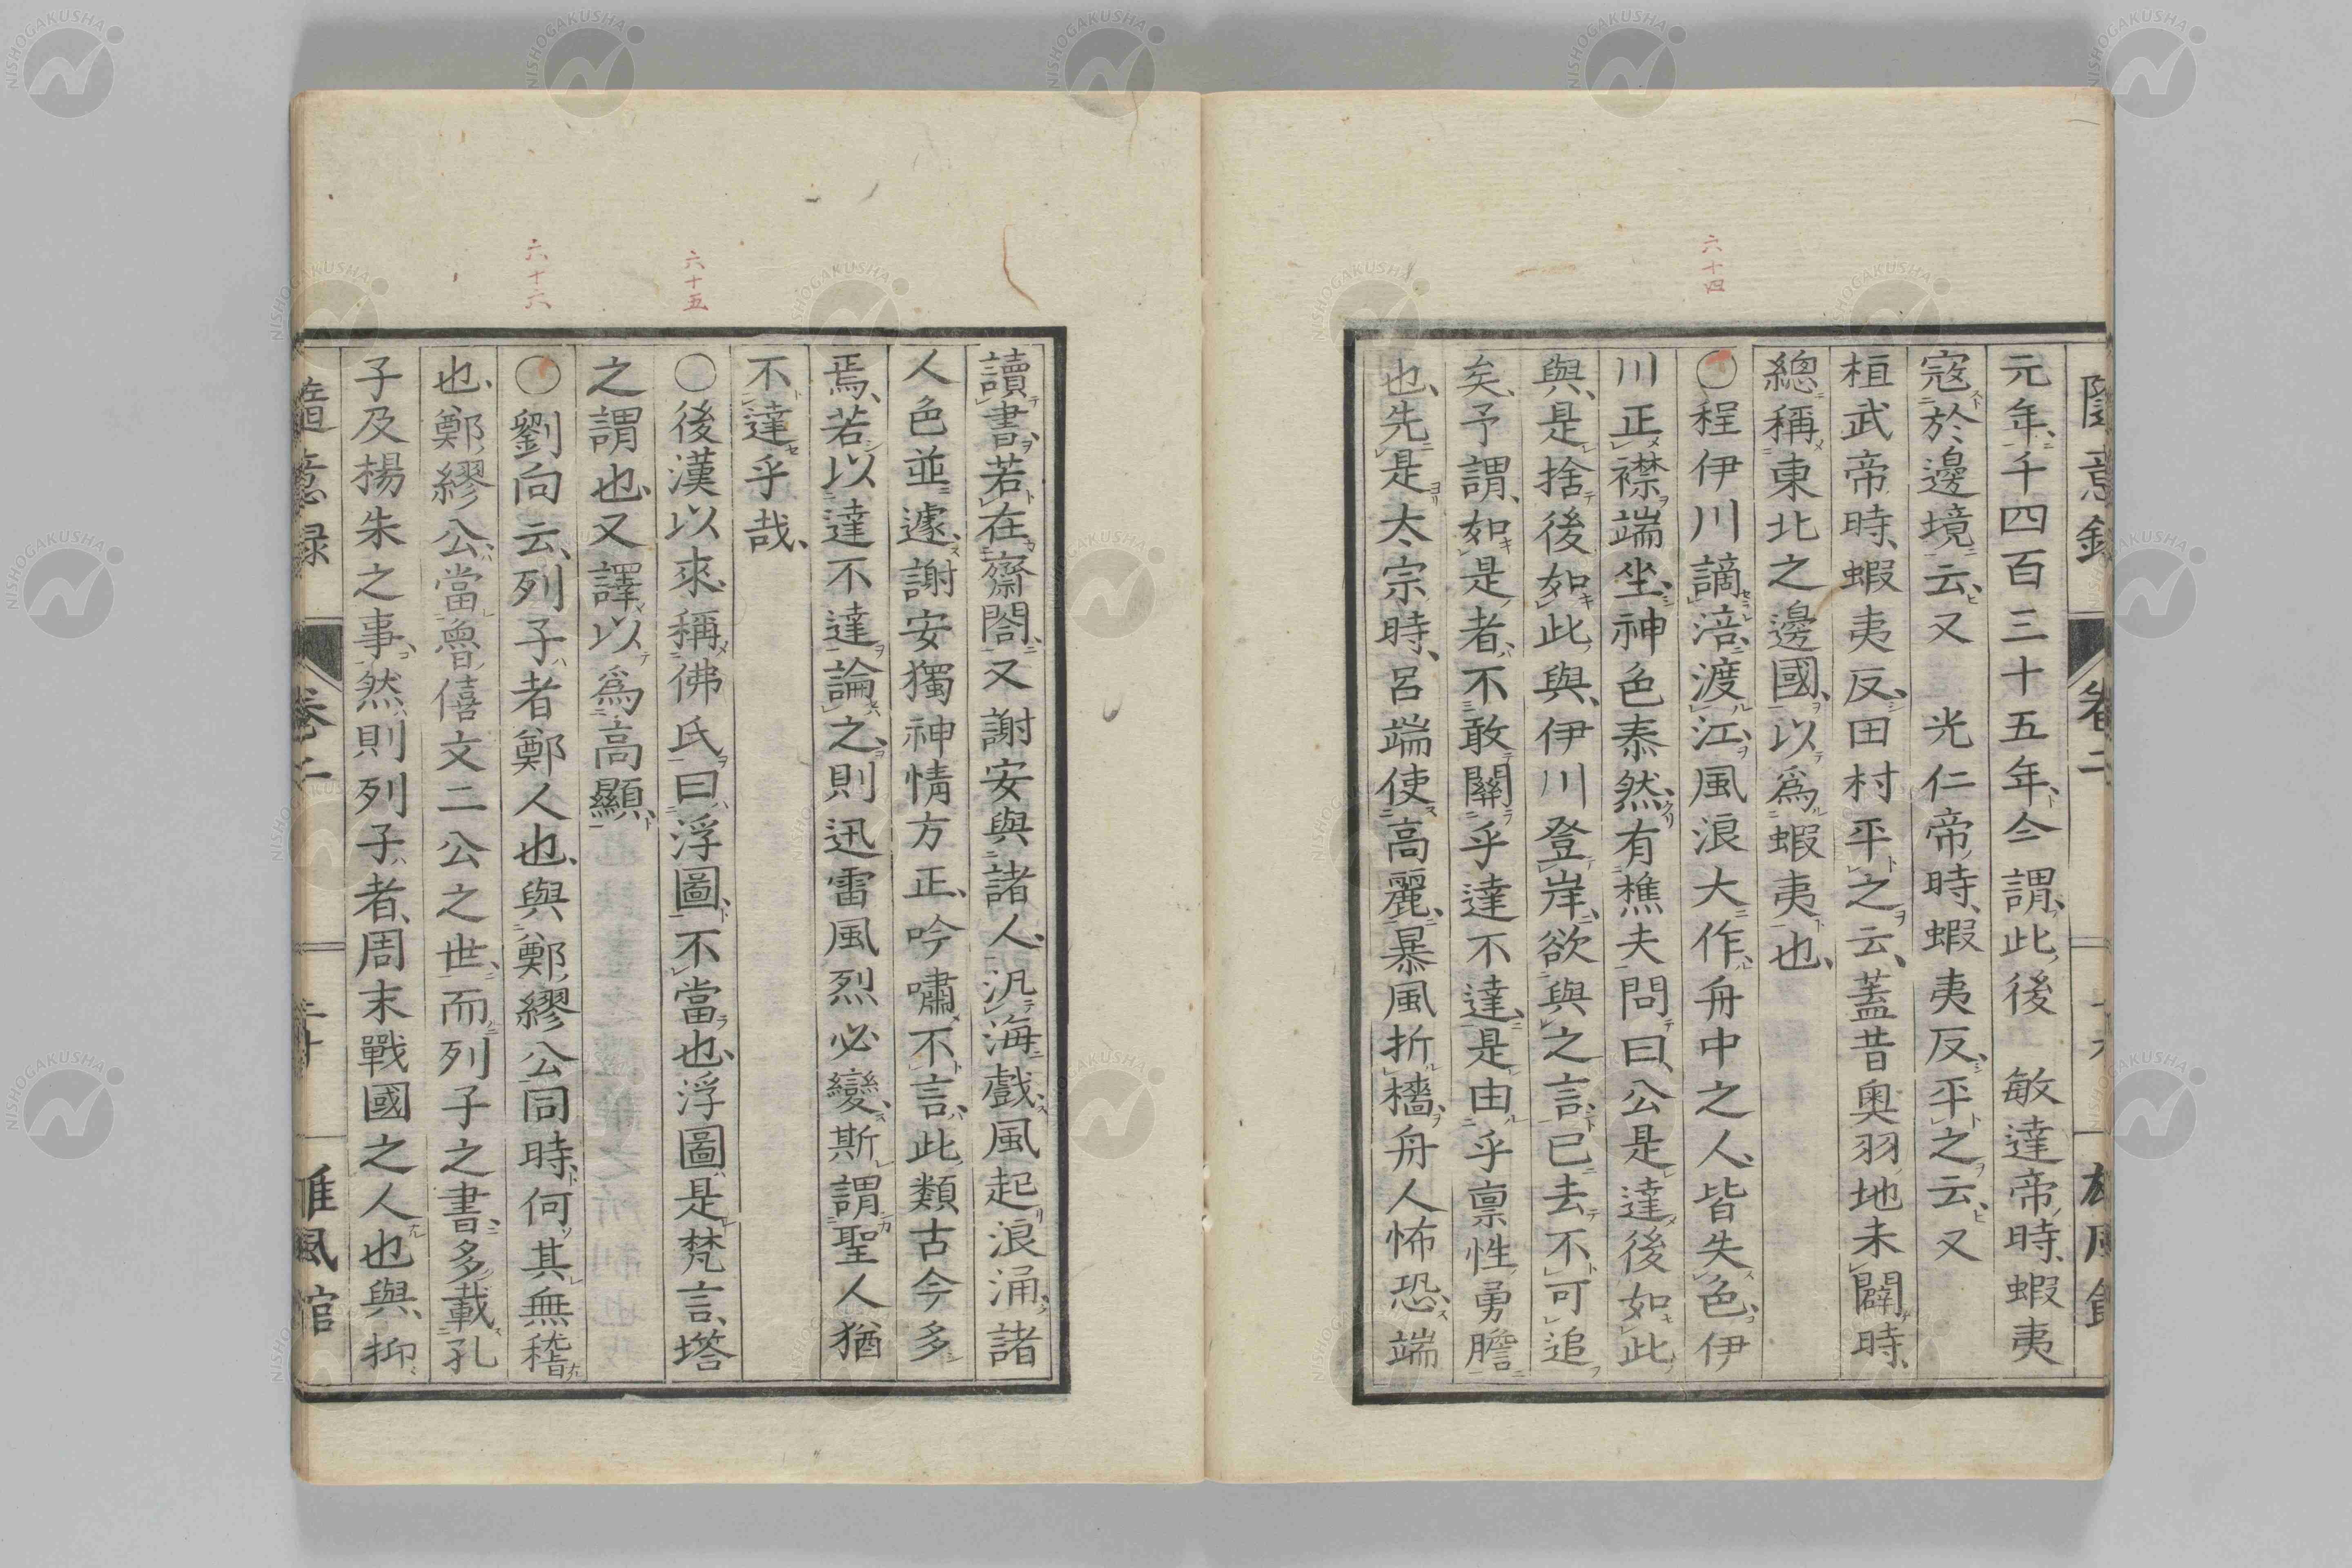 六十四
元年、千四百三十五年、今謂、此後　敏達帝時、蝦夷
寇於邊境云、又　光仁帝時、蝦夷反、平之云、又
桓武帝時、蝦夷反、田村平之云、蓋昔奧羽地未闢時、
總稱東北之邊國、以爲蝦夷也、
〇程伊川謫涪、渡江、風浪大作、舟中之人、皆失色、伊
川正襟端坐、神色泰然、有樵夫問曰、公是達後如此
與、是捨後如此與、伊川登岸、欲與之言、已去不可追
矣、予謂、如是者、不敢關乎達不達、是由乎稟性勇膽
也、先是太宗時、呂端使高麗、暴風折檣、舟人怖恐、端
六十五
六十六
讀書、若在齋閤、又謝安與諸人、汎海戲、風起浪涌、諸
人色並遽、謝安獨神情方正、吟嘯不言、此類古今多
焉、若以達不達論之、則迅雷風烈必變、斯謂聖人猶
不達乎哉、
〇後漢以來、稱佛氏曰浮圖、不當也、浮圖是梵言、塔
之謂也、又譯以爲高顯、
〇劉向云、列子者鄭人也、與鄭繆公同時、何其無稽
也、鄭繆公、當魯僖文二公之世、而列子之書、多載孔
子及楊朱之事、然則列子者、周末戰國之人也與、抑
隨意録
卷二
二十
雄風館
NISHOGAKUSHA